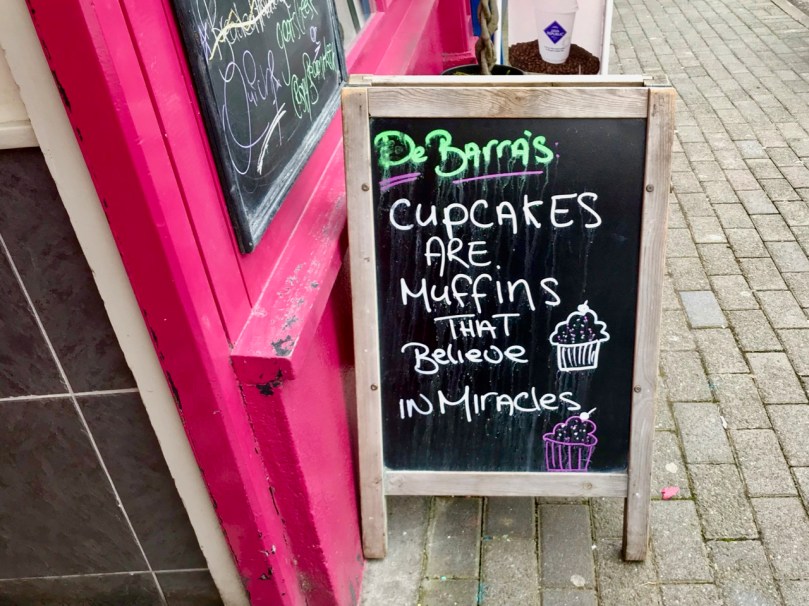 De Barra's
CUPCAKES
ARE
Muffins
THAT
Believe
IN Miracles